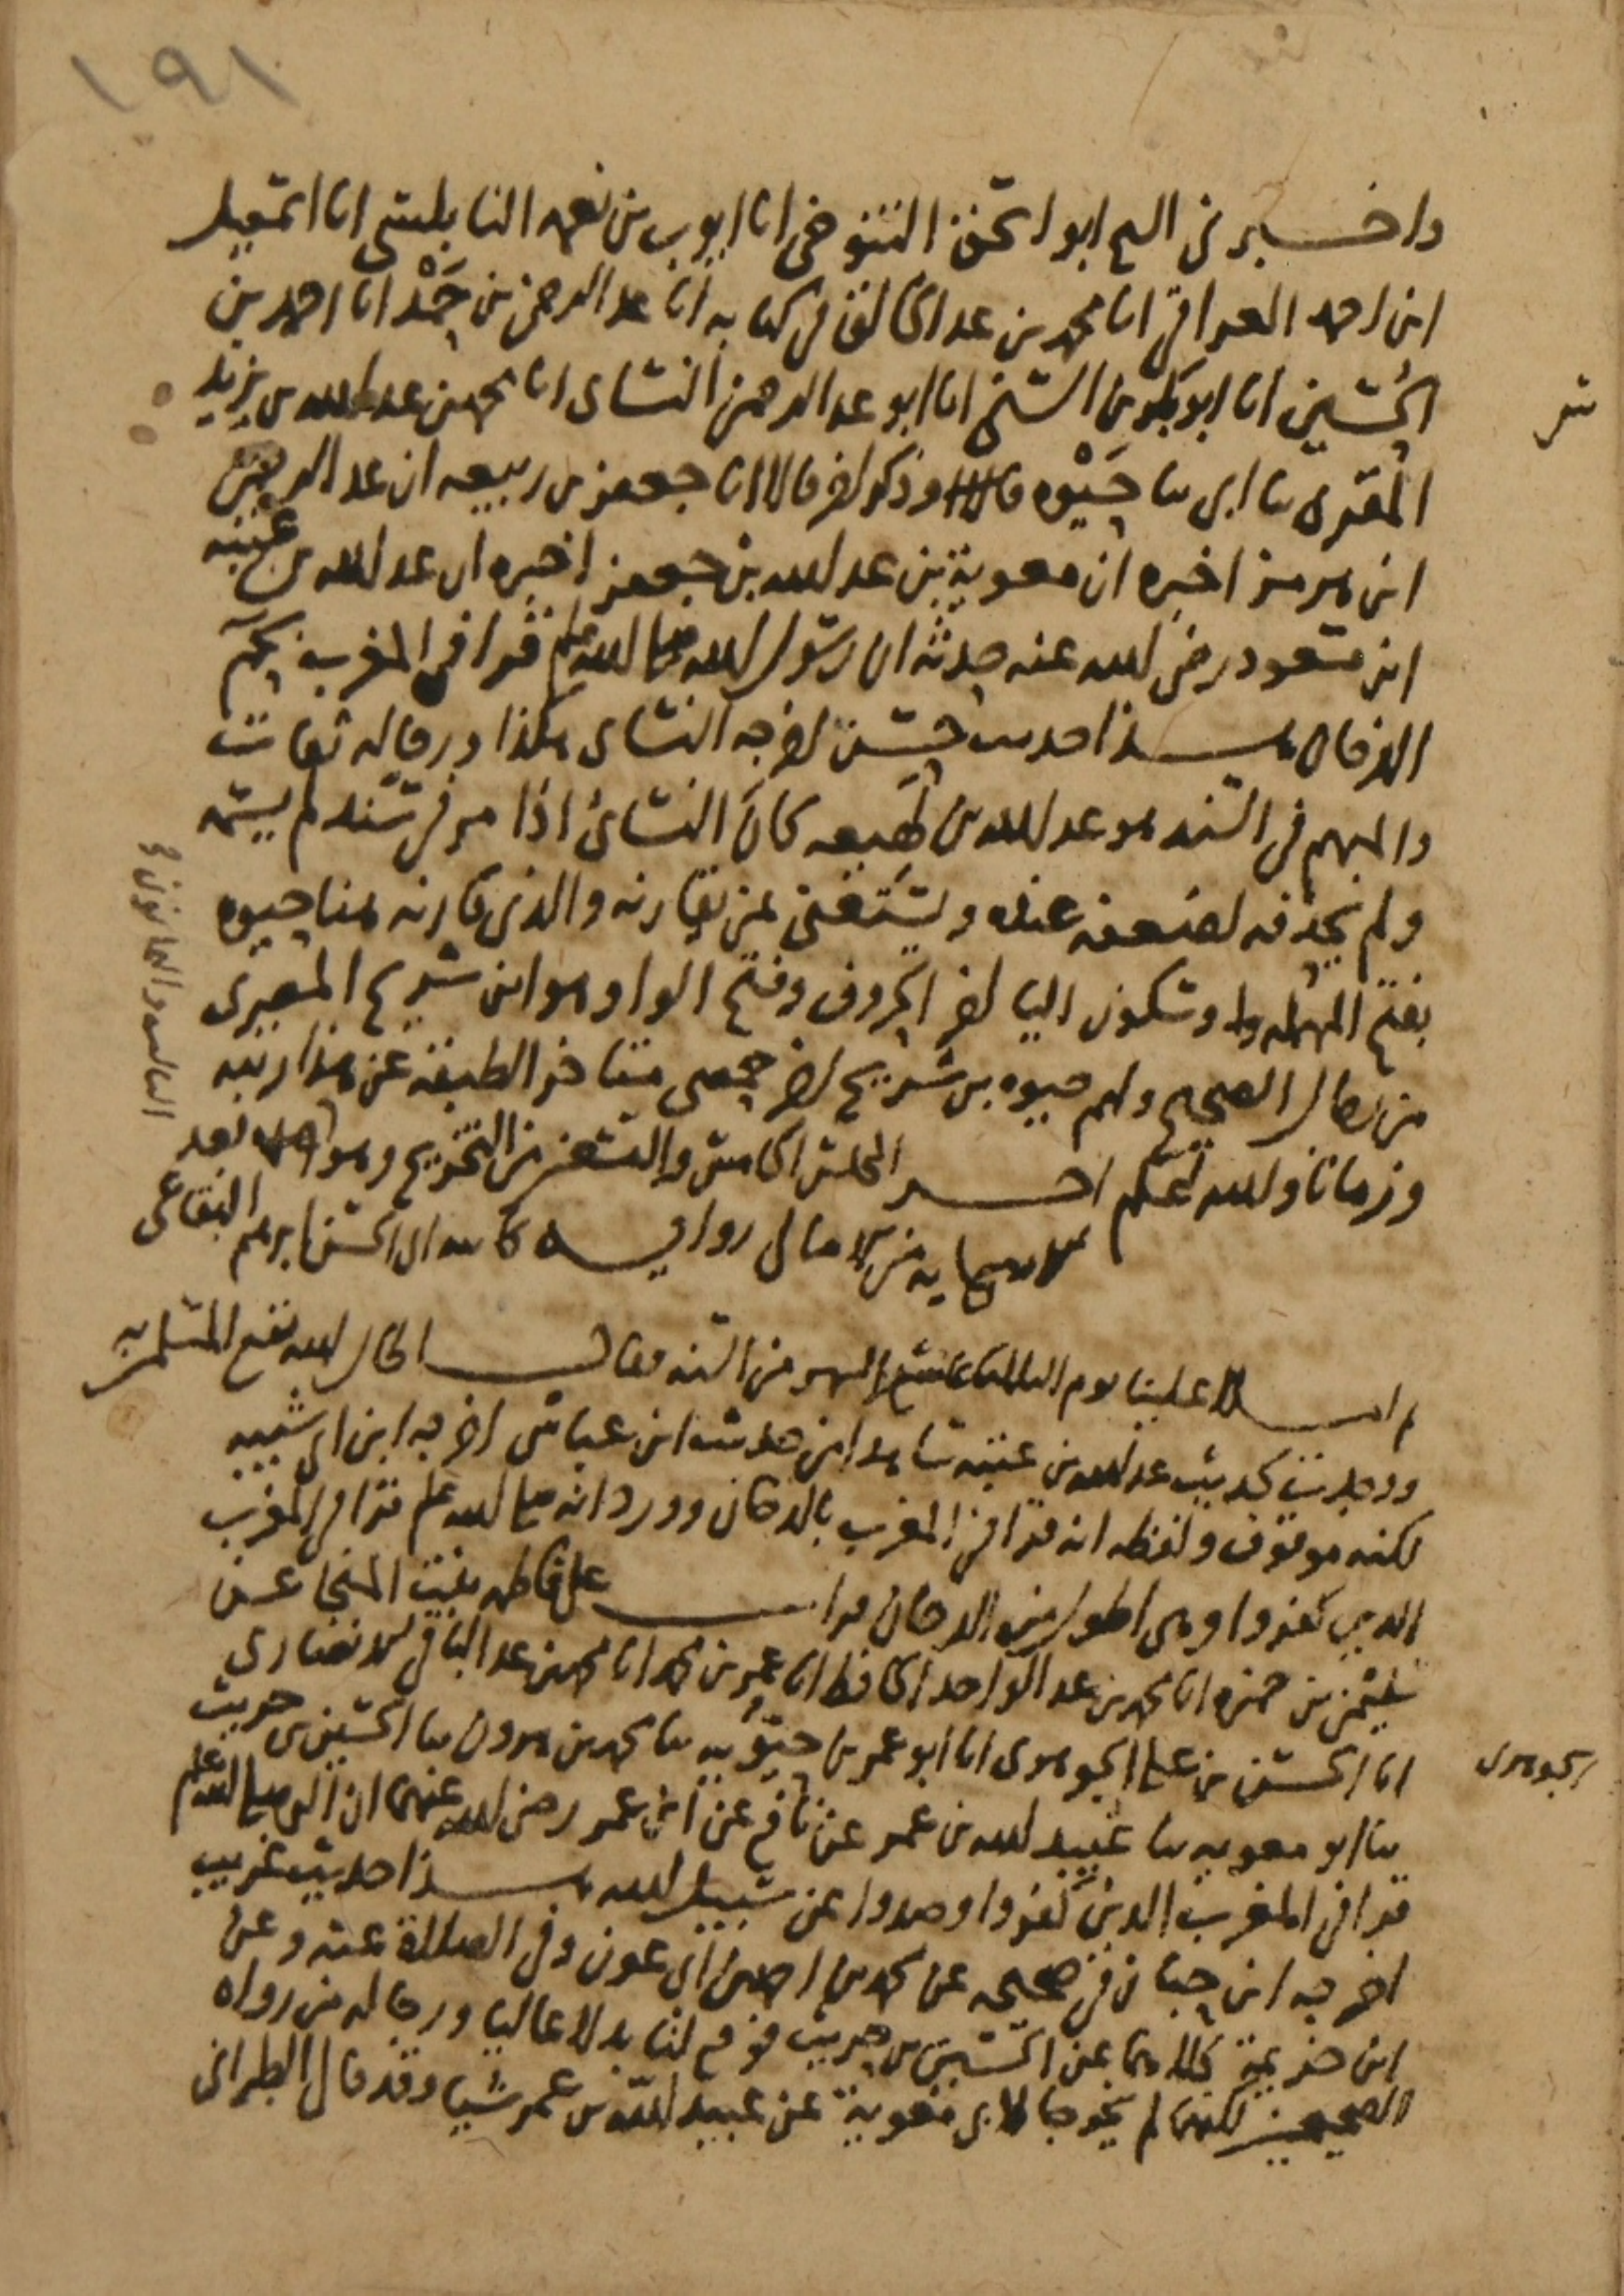 ١٩١
واخبرني الشيخ ابو اسحق التنوخي انا ايوب بن نعمه النابلسي انا اسمعيل
ابن احمد العراقي انا محمد بن عبد الخالق في كتابه انا عبد الرحمن بن حَمْد انا احمد بن
الحسين انا ابو بكر بن السني انا ابو عبد الرحمن النسائ انا محمد بن عبد الله بن يزيد
المقرى ثنا ابى ثنا حَيْوه وذكر اخر قالا انا جعفر بن ربيعه ان عبد الرحمن
ابن هرمز اخبره ان معوية بن عبد الله بن جعفر اخبره ان عبد الله بن عتبه
ابن مسعود رضي الله عنه حدثه ان رسول الله صلى الله عليه وسلم قرا في المغرب بحم
الدخان هذا حديث حسن اخرجه النسائ هكذا ورجاله ثقات
والمبهم في السند هو عبد الله بن لهيعه كان النسائ اذا مر في سند لم يسمه
ولم يحذفه لضعفه عنده ويستغني بمن يقارنه والذي قارنه هنا حيوه
بفتح المهمله وسكون اليا اخر الحروف وفتح الواو وهو ابن شريح المصري
من رجال الصحيح ولهم حيوه بن شريح اخر حمصي متاخر الطبقة عن هذا رتبه
وزمانا والله اعلم اخر المجلس الخامس والتسعين من التخريج وهو بعد
من الامالي رواية كاتبه ابى الحسن ابرهيم البقاعى
ثم املا علينا يوم الثلثا تاسع الشهر من السنه فقال الحال الله نفع المسلمين به
ووجدت لحديث عبد الله بن عتبه شاهدا من حديث ابن عباس اخرجه ابن ابى شيبه
لكنه موقوف ولفظه انه قرا في المغرب بالدخان وورد انه صلى الله عليه وسلم قرا في المغرب
الذين كفروا وهي اطول من الدخان قرات على فاطمه بنت المنجا عن
سليمن بن حمزه انا محمد بن عبد الواحد الحافظ انا عمر بن محمد انا محمد بن عبد الباقي الانصارى
انا الحسن بن على الجوهرى انا ابو عمر بن حيّويه ثنا محمد بن هرون ثنا الحسين بن حريث
ثنا ابو معويه ثنا عبيد الله بن عمر عن نافع عن ابن عمر رضي الله عنهما ان النبي صلى الله عليه وسلم
قرا في المغرب الذين كفروا وصدوا عن سبيل الله هذا حديث غريب
اخرجه ابن حبان في صحيحه عن محمد بن احمد بن ابى عون وفي الصلاة عنه وعن
ابن خزيمة كلاهما عن الحسين بن حريث فوقع لنا بدلا عاليا ورجاله من رواه
الصحيحين لكنهما لم يخرجا لابى معوية عن عبيد الله بن عمر شيا وقد قال الطبراني
الجوهرى